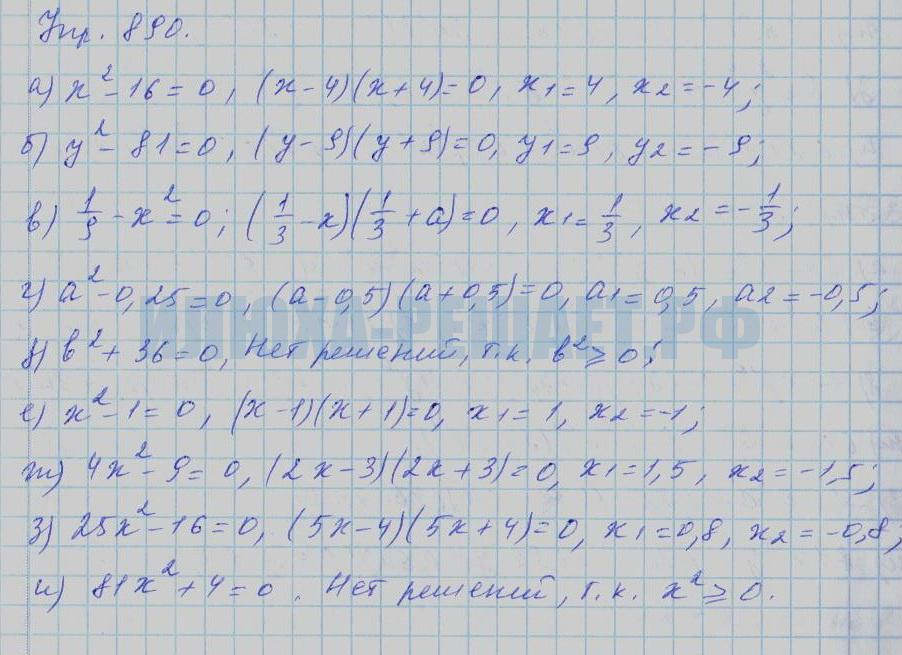 Упр. 890.
а) x² - 16 = 0, (x - 4)(x + 4) = 0, x₁ = 4, x₂ = -4;
б) y² - 81 = 0, (y - 9)(y + 9) = 0, y₁ = 9, y₂ = -9;
в) 1/9 - x² = 0; (1/3 - x)(1/3 + a) = 0, x₁ = 1/3, x₂ = -1/3;
г) a² - 0,25 = 0, (a - 0,5)(a + 0,5) = 0, a₁ = 0,5, a₂ = -0,5;
ИЛЮХА-РЕШАЕТ.РФ
д) b² + 36 = 0, Нет решений, т.к. b² ≥ 0;
е) x² - 1 = 0, (x - 1)(x + 1) = 0, x₁ = 1, x₂ = -1;
ж) 4x² - 9 = 0, (2x - 3)(2x + 3) = 0, x₁ = 1,5, x₂ = -1,5;
з) 25x² - 16 = 0, (5x - 4)(5x + 4) = 0, x₁ = 0,8, x₂ = -0,8;
и) 81x² + 4 = 0. Нет решений, т.к. x² ≥ 0.